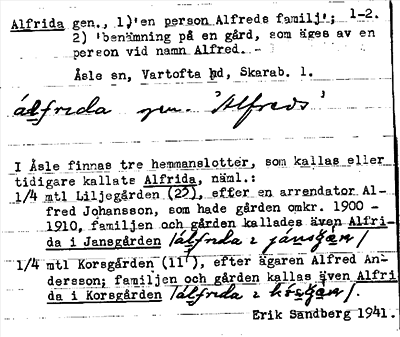 Alfrida gen., 1)'en person Alfreds familj'; 1-2.
2) 'benämning på en gård, som äges av en
person vid namn Alfred.
Åsle sn, Vartofta hd, Skarab. l.
álfrida gen. 'Alfreds'
I Åsle finnas tre hemmanslotter, som kallas eller
tidigare kallats Alfrida, näml.:
1/4 mtl Liljegården (2²), efter en arrendator Al-
fred Johansson, som hade gården omkr. 1900 -
1910, familjen och gården kallades även Alfri-
da i Jansgården /álfrida i
1/4 mtl Korsgården (11¹), efter ägaren Alfred An-
dersson; familjen och gården kallas även Alfri
da i Korsgården /álfrida i
Erik Sandberg 1941.